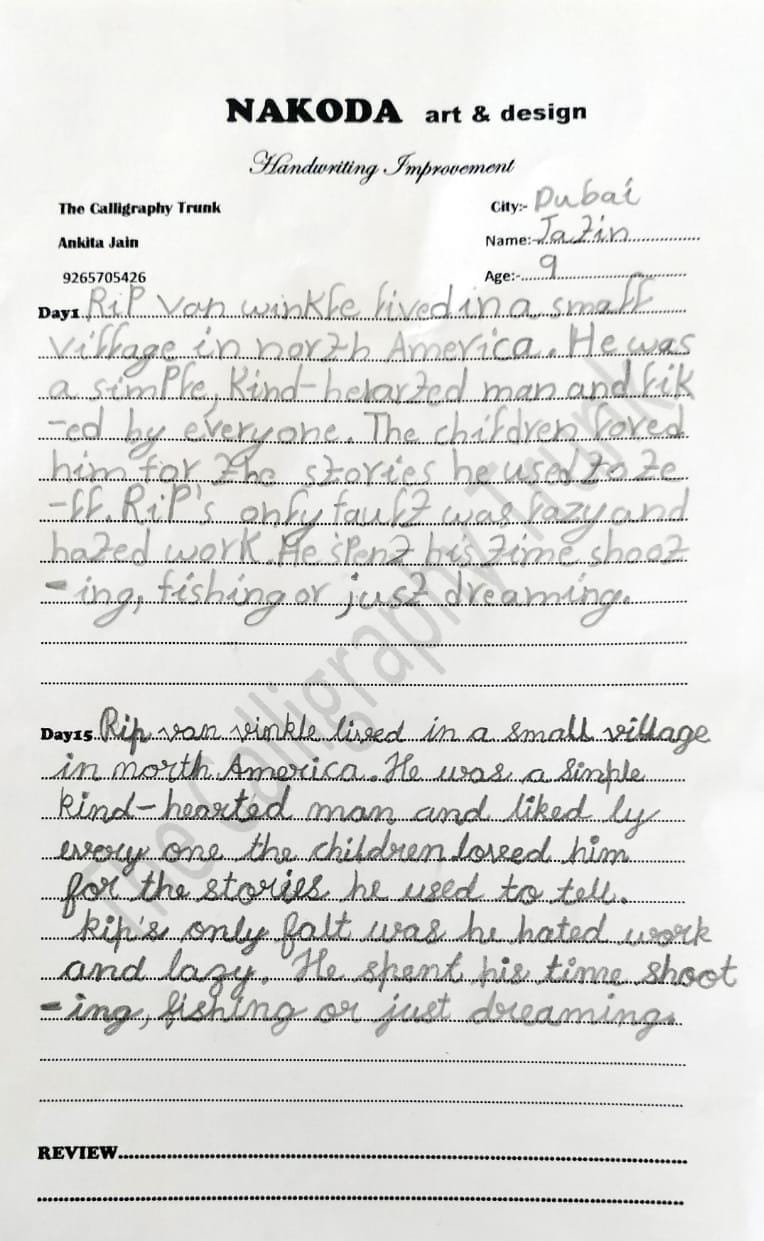 NAKODA art & design
Handwriting Improvement
The Calligraphy Trunk
City:- Dubai
Ankita Jain
Name:- Jazin
9265705426
Age:- 9
Day1 Rip van winkle lived in a small
village in north America. He was
a simple, kind-hearted man and lik
-ed by everyone. The children loved
him for the stories he used to te
-ll. Rip's only fault was lazy and
hated work. He spent his time shoot
-ing, fishing or just dreaming.
Day15 Rip van vinkle lived in a small village
in north America. He was a simple
kind-hearted man and liked ly
every one the children loved him
for the stories he used to tell.
Rip's only falt was he hated work
and lazy. He spent his time shoot
-ing, fishing or just dreaming.
REVIEW
The Calligraphy Trunk